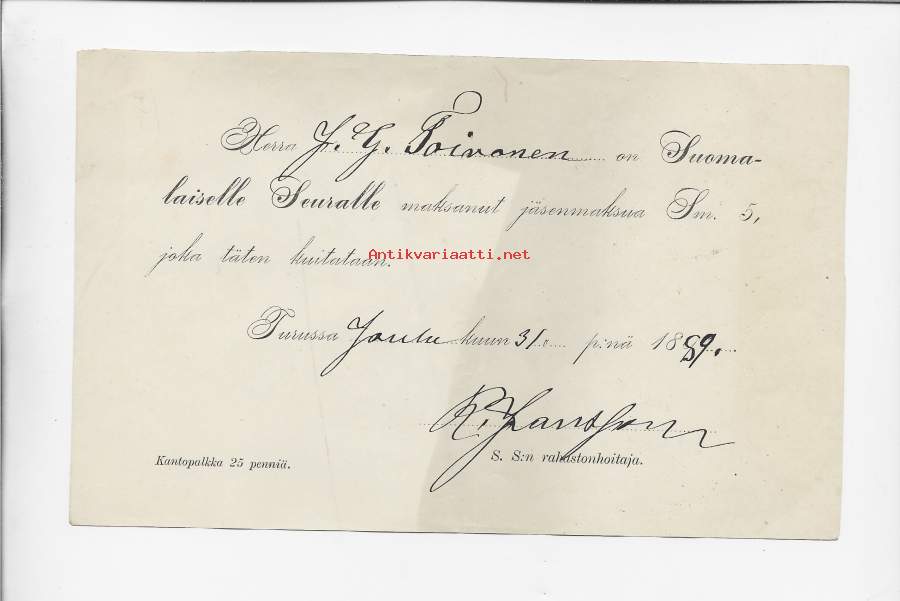 Herra J. G. Toivonen on Suoma-
laiselle Seuralle maksanut jäsenmaksua Sm. 5,
joka täten kuitataan.
Antikvariaatti.net
Turussa Joulu kuun 31. p:nä 1889.
S. S:n rahastonhoitaja.
Kantopalkka 25 penniä.